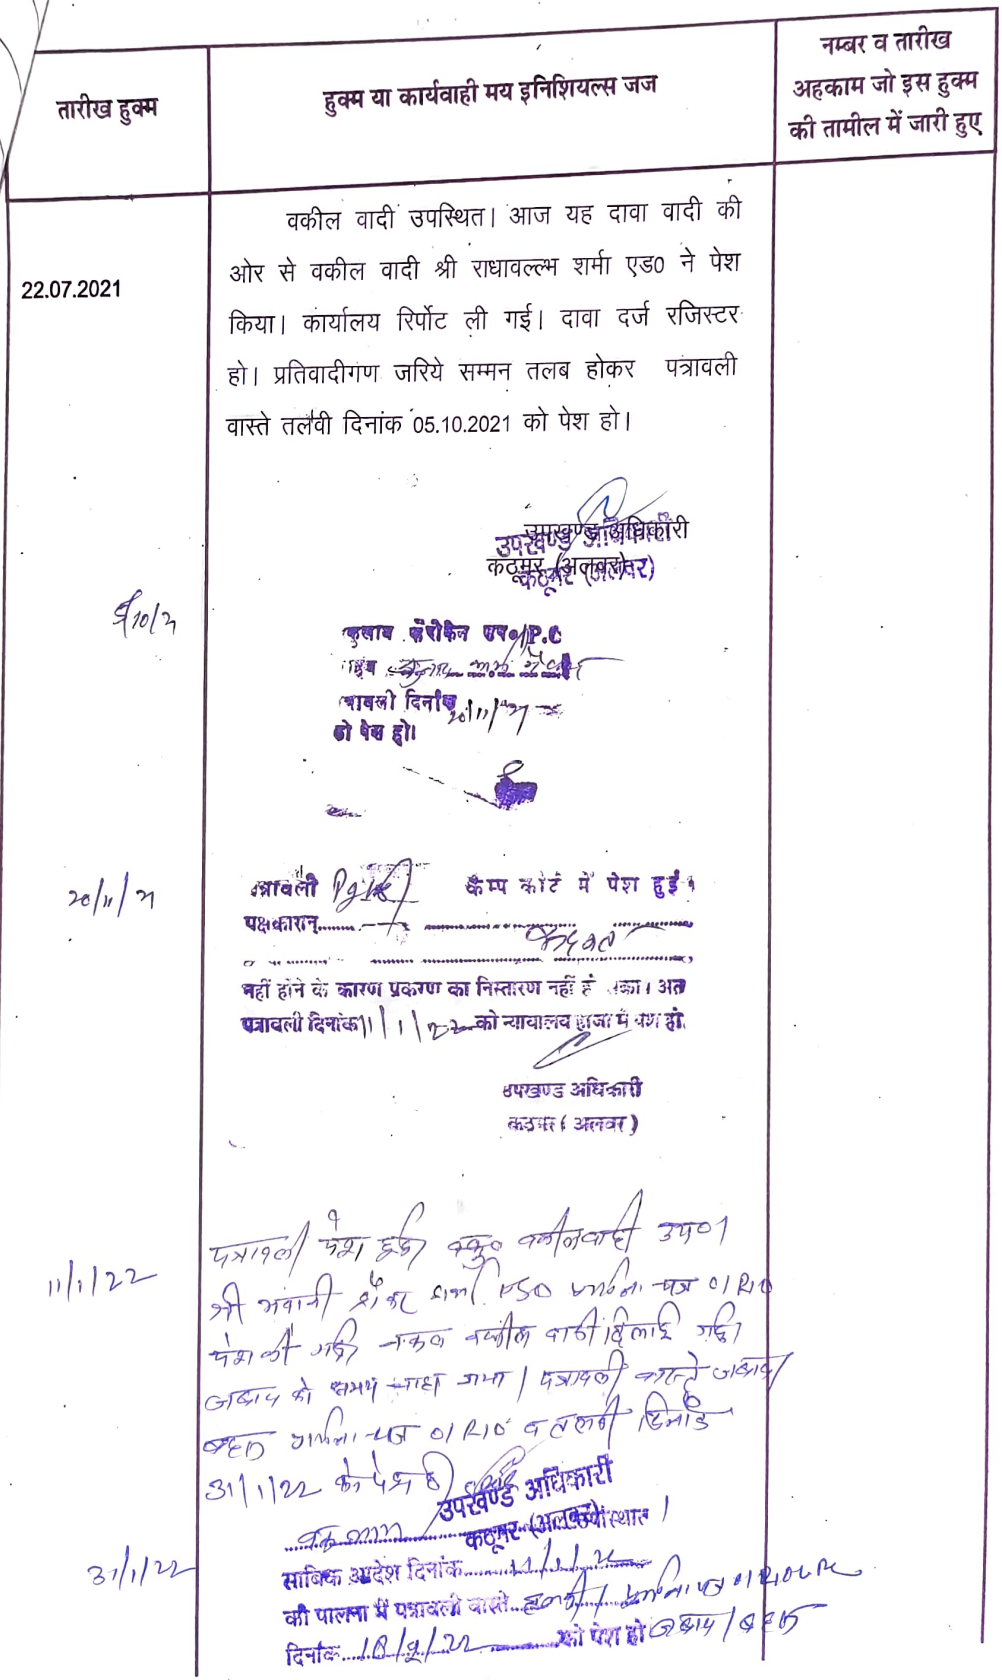 तारीख हुक्म
हुक्म या कार्यवाही मय इनिशियल्स जज
नम्बर व तारीख
अहकाम जो इस हुक्म
की तामील में जारी हुए
22.07.2021
वकील वादी उपस्थित। आज यह दावा वादी की
ओर से वकील वादी श्री राधावल्लभ शर्मा एड0 ने पेश
किया। कार्यालय रिर्पोट ली गई। दावा दर्ज रजिस्टर
हो। प्रतिवादीगण जरिये सम्मन तलब होकर पत्रावली
वास्ते तलवी दिनांक 05.10.2021 को पेश हो।
उपखण्ड अधिकारी
कठूमर (अलवर)
उपखण्ड अधिकारी
कठूमर (अलवर)
पत्रावली दिनांक 20/11/21
को पेश हो।
20/11/21
पत्रावली कैम्प कोर्ट में पेश हुई।
पक्षकारान्
नहीं होने के कारण प्रकरण का निस्तारण नहीं हो सका। अत
पत्रावली दिनांक 11/1/22 को न्यायालय हाजा में पेश हो.
उपखण्ड अधिकारी
कठूमर (अलवर)
11/1/22
पत्रावली पेश हुई। वकील वादी उप0।
श्री भवानी शंकर शर्मा प्रार्थना पत्र 01R10
पेश की गई। नकल वकील वादी दिलाई गई।
जबाव को समय चाहा गया। पत्रावली वास्ते जबाव/
बहस प्रार्थना पत्र 01R10 व तलवी दिनांक
31/1/22 को पेश हो।
उपखण्ड अधिकारी
कठूमर (अलवर)
31/1/22
साबिक आदेश दिनांक 11/1/22
की पालना में पत्रावली वास्ते तलवी / प्रार्थना पत्र
दिनांक को पेश हो जबाव/बहस